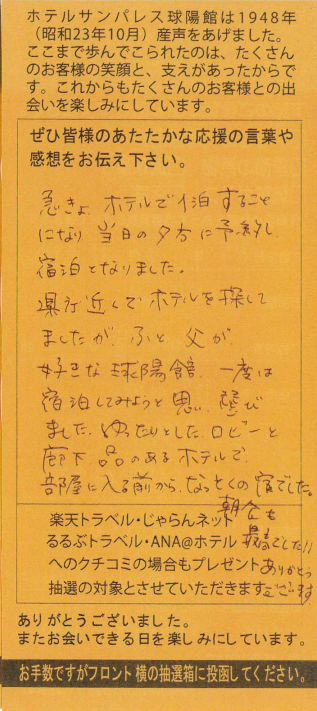 ホテルサンパレス球陽館は1948年
（昭和23年10月）産声をあげました。
ここまで歩んでこられたのは、たくさん
のお客様の笑顔と、支えがあったからで
す。これからもたくさんのお客様との出
会いを楽しみにしています。
ぜひ皆様のあたたかな応援の言葉や
感想をお伝え下さい。
急きょ ホテルで1泊すること
になり 当日の夕方に予約し
宿泊となりました。
県庁近くでホテルを探して
ましたが、ふと 父が
好きな 球陽館、一度は
宿泊してみようと思い、選び
ました。ゆったりとした ロビーと
廊下、品のあるホテルで、
部屋に入る前から、なっとくの宿でした。
朝食も
最高でした!!
ありがとう
ございます
楽天トラベル・じゃらんネット
るるぶトラベル・ANA@ホテル
へのクチコミの場合もプレゼント
抽選の対象とさせていただきます
ありがとうございました。
またお会いできる日を楽しみにしています。
お手数ですがフロント横の抽選箱に投函してください。